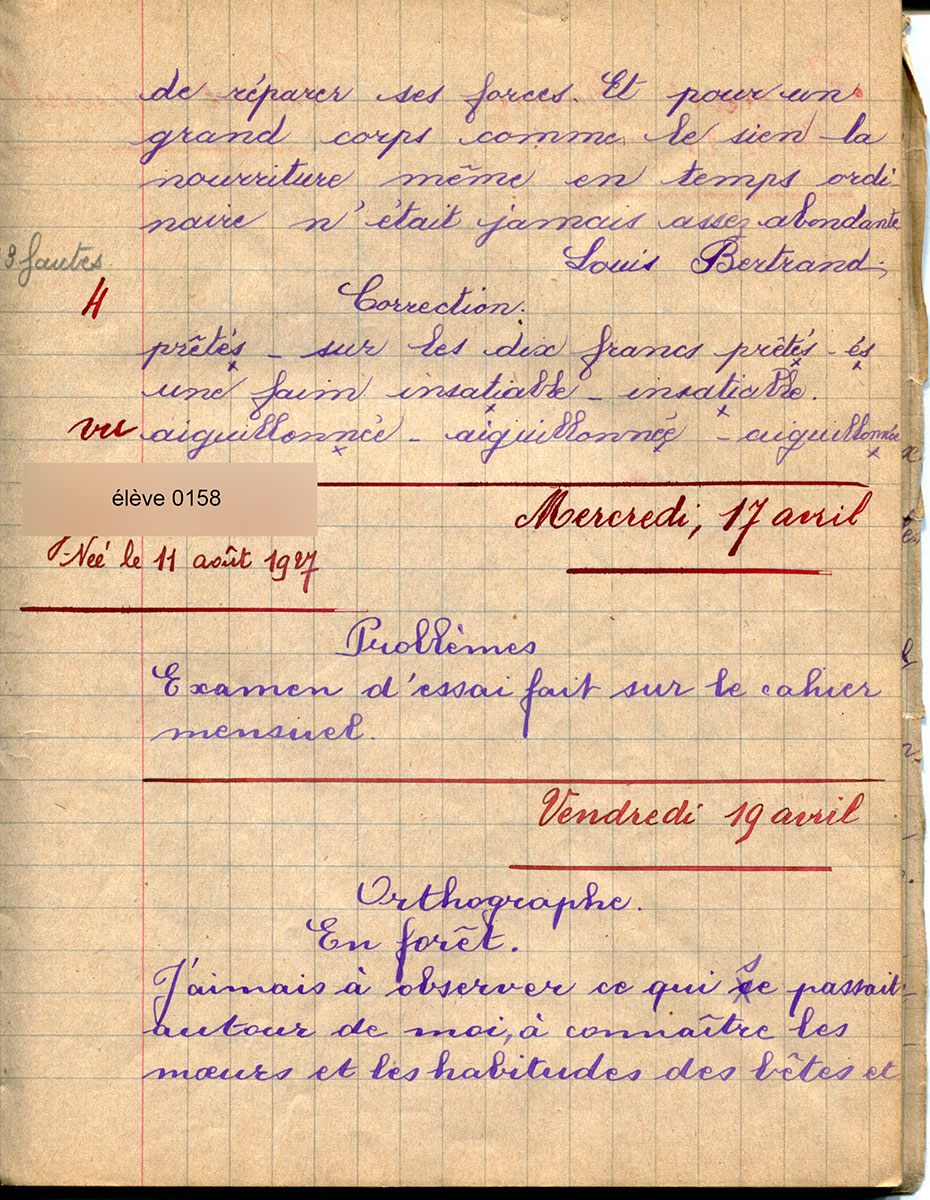 de réparer ses forces. Et pour un
grand corps comme le sien la
nourriture même en temps ordi
naire n'était jamais assez abondante
Louis Bertrand.
3 fautes
4
Correction.
prêtés - sur les dix francs prêtés - és
une faim insatiable - insatiable.
vu
aiguillonnée - aiguillonnée - aiguillonnée
élève 0158
Mercredi, 17 avril
Née le 11 août 1927
Problèmes
Examen d'essai fait sur le cahier
mensuel.
Vendredi 19 avril
Orthographe.
En forêt.
J'aimais à observer ce qui se passait
autour de moi, à connaître les
mœurs et les habitudes des bêtes et